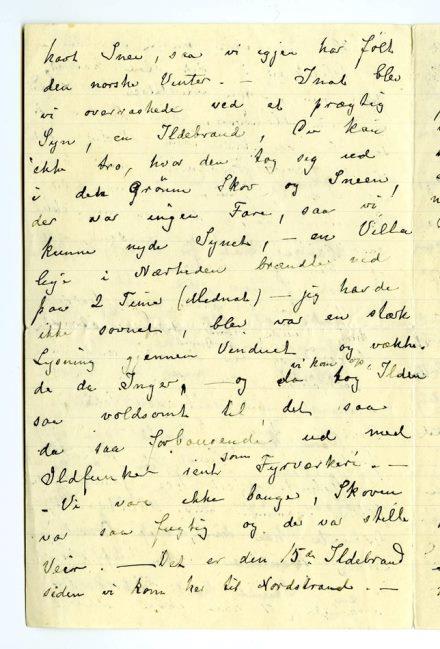 havt Snee, saa vi igjen har følt
den norske Vinter. — Inat blev
vi overraskede ved et prægtig
Syn, en Ildebrand, Du kan
ikke tro, hvor den tog sig ud
i den Grønne Skov og Sneen,
der var ingen Fare, saa vi
kunne nyde Synet, — en Villa
lige i Nærheden brændte ved
paa 2 Time (Midnat) — jeg havde
ikke sovnet, blev var en stærk
Lysning gjennem Vinduet og vække-
de da Inger, — og da vi kom op, tog Ilden
saa voldsomt til det saa
da saa forbausende ud med
Ildfunker rent som Fyrværkeri. —
- Vi vare ikke bange, Skoven
var saa fugtig og det var stille
Veir. — Det er den 15de Ildebrand
siden vi kom her til Nordstrand. —